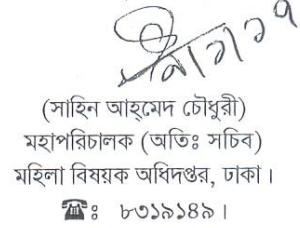 (সাহিন আহ্‌মেদ চৌধুরী)
মহাপরিচালক (অতিঃ সচিব)
মহিলা বিষয়ক অধিদপ্তর, ঢাকা।
☎ঃ ৮৩১৯১৪৯।